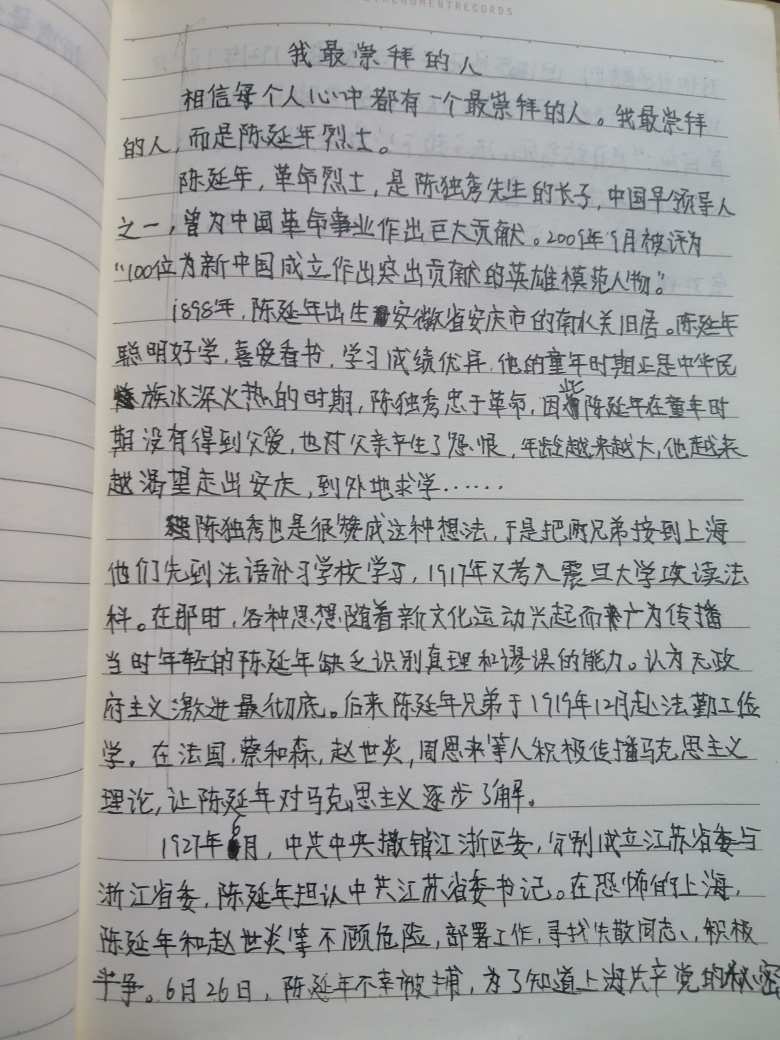 我最崇拜的人
相信每个人心中都有一个最崇拜的人。我最崇拜
的人,而是陈延年烈士。
陈延年,革命烈士,是陈独秀先生的长子,中国早领导人
之一,曾为中国革命事业作出巨大贡献。2009年9月被评为
“100位为新中国成立作出突出贡献的英雄模范人物。”
1898年,陈延年出生安徽省安庆市的南水关旧居。陈延年
聪明好学,喜爱看书,学习成绩优异,他的童年时期正是中华民
族水深火热的时期,陈独秀忠于革命,因此陈延年在童年时
期没有得到父爱,也对父亲产生了怨恨,年龄越来越大,他越来
越渴望走出安庆,到外地求学……
陈独秀也是很赞成这种想法,于是把两兄弟接到上海
他们先到法语补习学校学习,1917年又考入震旦大学攻读法
科。在那时,各种思想随着新文化运动兴起而广为传播
当时年轻的陈延年缺乏识别真理和谬误的能力。认为无政
府主义激进最彻底。后来陈延年兄弟于1919年12月赴法勤工俭
学。在法国,蔡和森,赵世炎,周恩来等人积极传播马克思主义
理论,让陈延年对马克思主义逐步了解。
1927年6月,中共中央撤销江浙区委,分别成立江苏省委与
浙江省委,陈延年担认中共江苏省委书记。在恐怖的上海,
陈延年和赵世炎等不顾危险,部署工作,寻找失散同志,积极
斗争。6月26日,陈延年不幸被捕,为了知道上海共产党的秘密